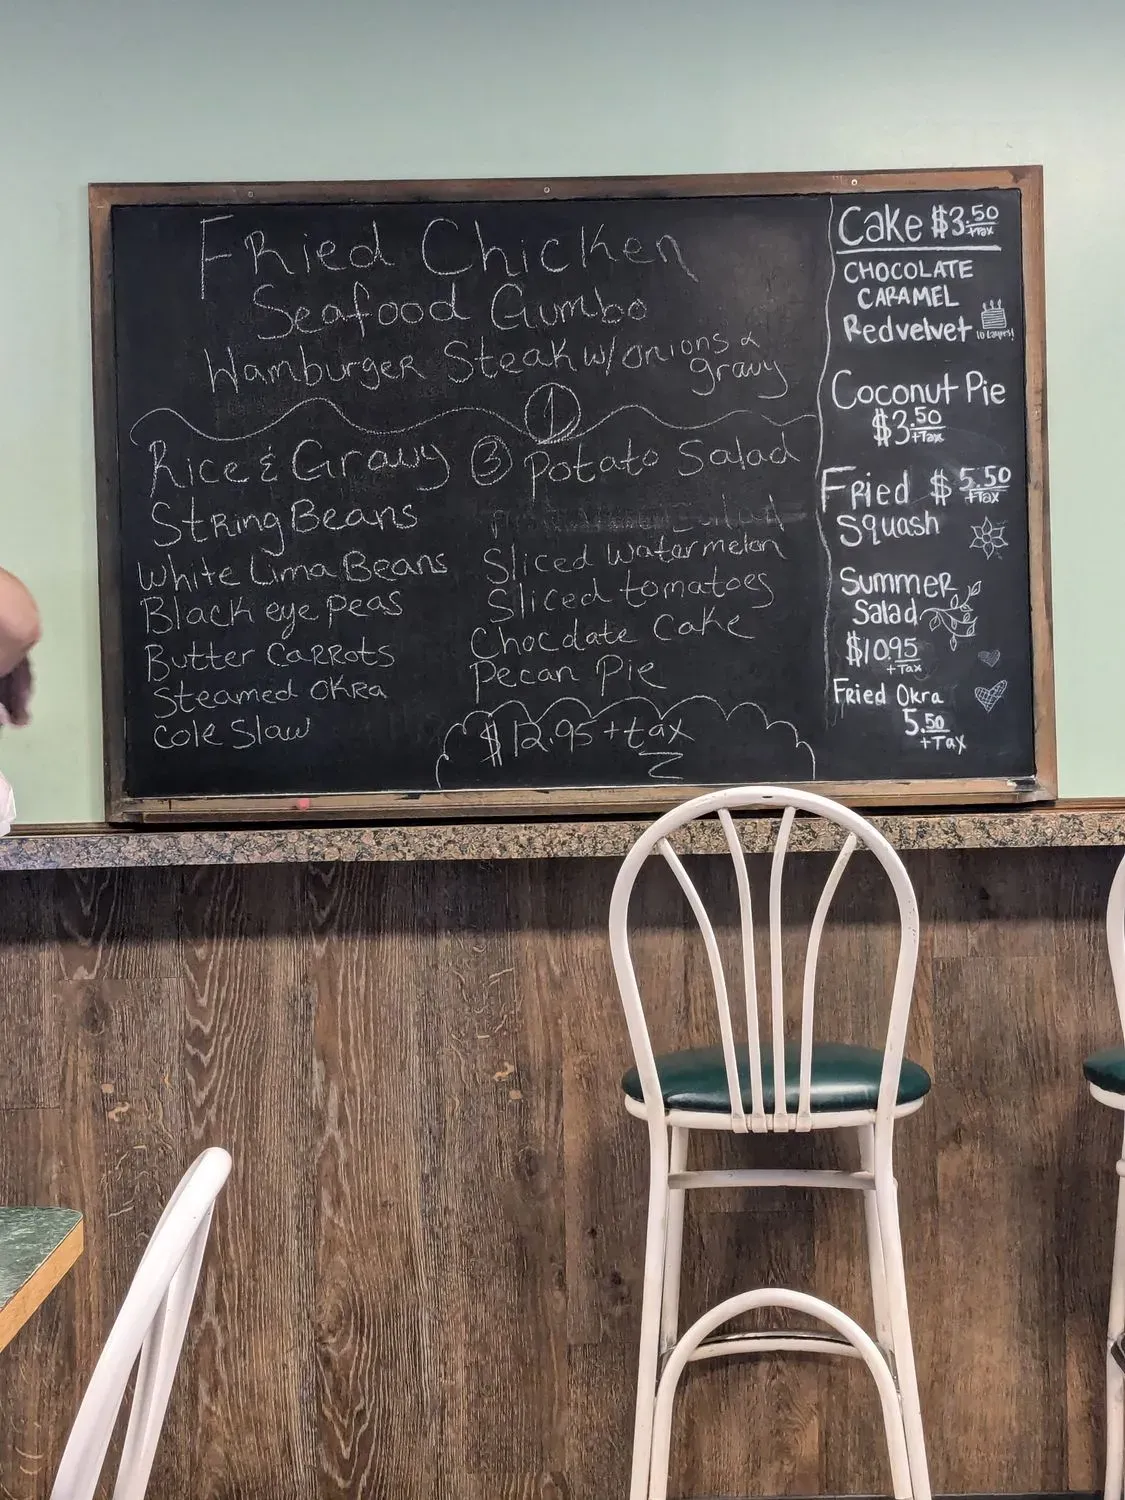 Fried Chicken
Seafood Gumbo
Hamburger Steak w/onions &
gravy
1
Rice & Gravy
String Beans
White Lima Beans
Black eye peas
Butter Carrots
Steamed Okra
Cole Slaw
3
Potato Salad
Sliced watermelon
Sliced tomatoes
Chocolate Cake
Pecan Pie
$12.95 + tax
Cake $3.50
+Tax
CHOCOLATE
CARAMEL
Redvelvet
Coconut Pie
$3.50
+Tax
Fried $5.50
+Tax
Squash
Summer
Salad
$10.95
+Tax
Fried Okra
5.50
+Tax